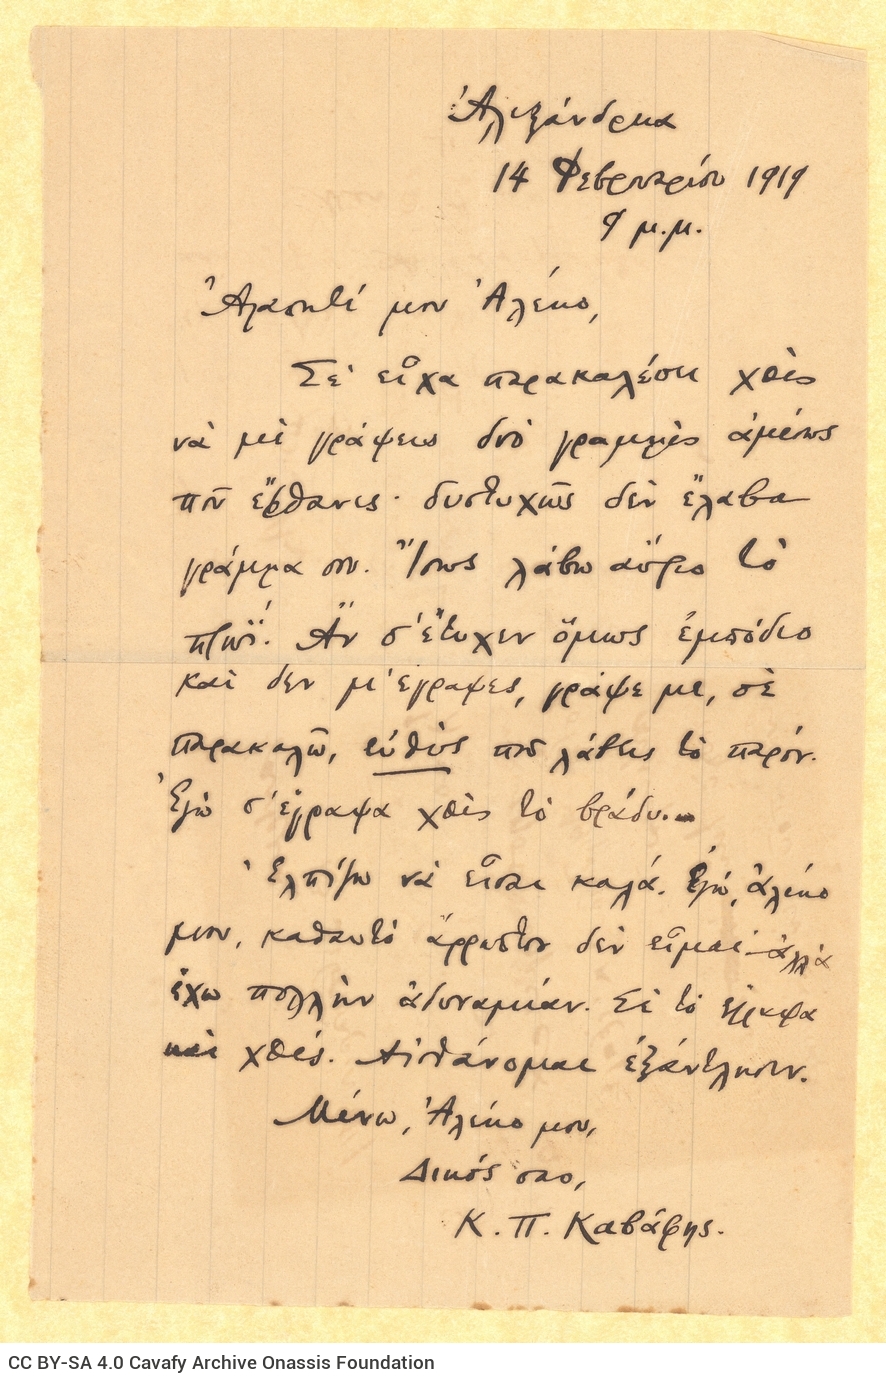 Ἀλεξάνδρεια
14 Φεβρουαρίου 1919
9 μ.μ.
Ἀγαπητέ μου Ἀλέκο,
Σὲ εἶχα παρακαλέσει χθὲς
νὰ μὲ γράψεις δυὸ γραμμὲς ἀμέσως
ποῦ ἔφθανες· δυστυχῶς δὲν ἔλαβα
γράμμα σου. Ἴσως λάβω αὔριο τὸ
πρωΐ. Ἂν σ' ἔτυχεν ὅμως ἐμπόδιο
καὶ δεν μ' έγραφες, γράψε με, σὲ
παρακαλῶ, εὐθὺς ποῦ λάβεις τὸ παρόν.
Ἐγὼ σ' ἔγραψα χθὲς τὸ βράδυ.
Ἐλπίζω νὰ εἶσαι καλά. Ἐγώ, Ἀλέκο
μου, καθαυτὸ ἄρρωστον δὲν εἶμαι· ἀλλὰ
ἔχω πολλὴν ἀδυναμίαν. Σὲ τὸ ἔγραψα
καὶ χθές. Αἰσθάνομαι ἐξάντλησιν.
Μένω, Ἀλέκο μου,
Δικός σου,
Κ. Π. Καβάφης.
CC BY-SA 4.0 Cavafy Archive Onassis Foundation